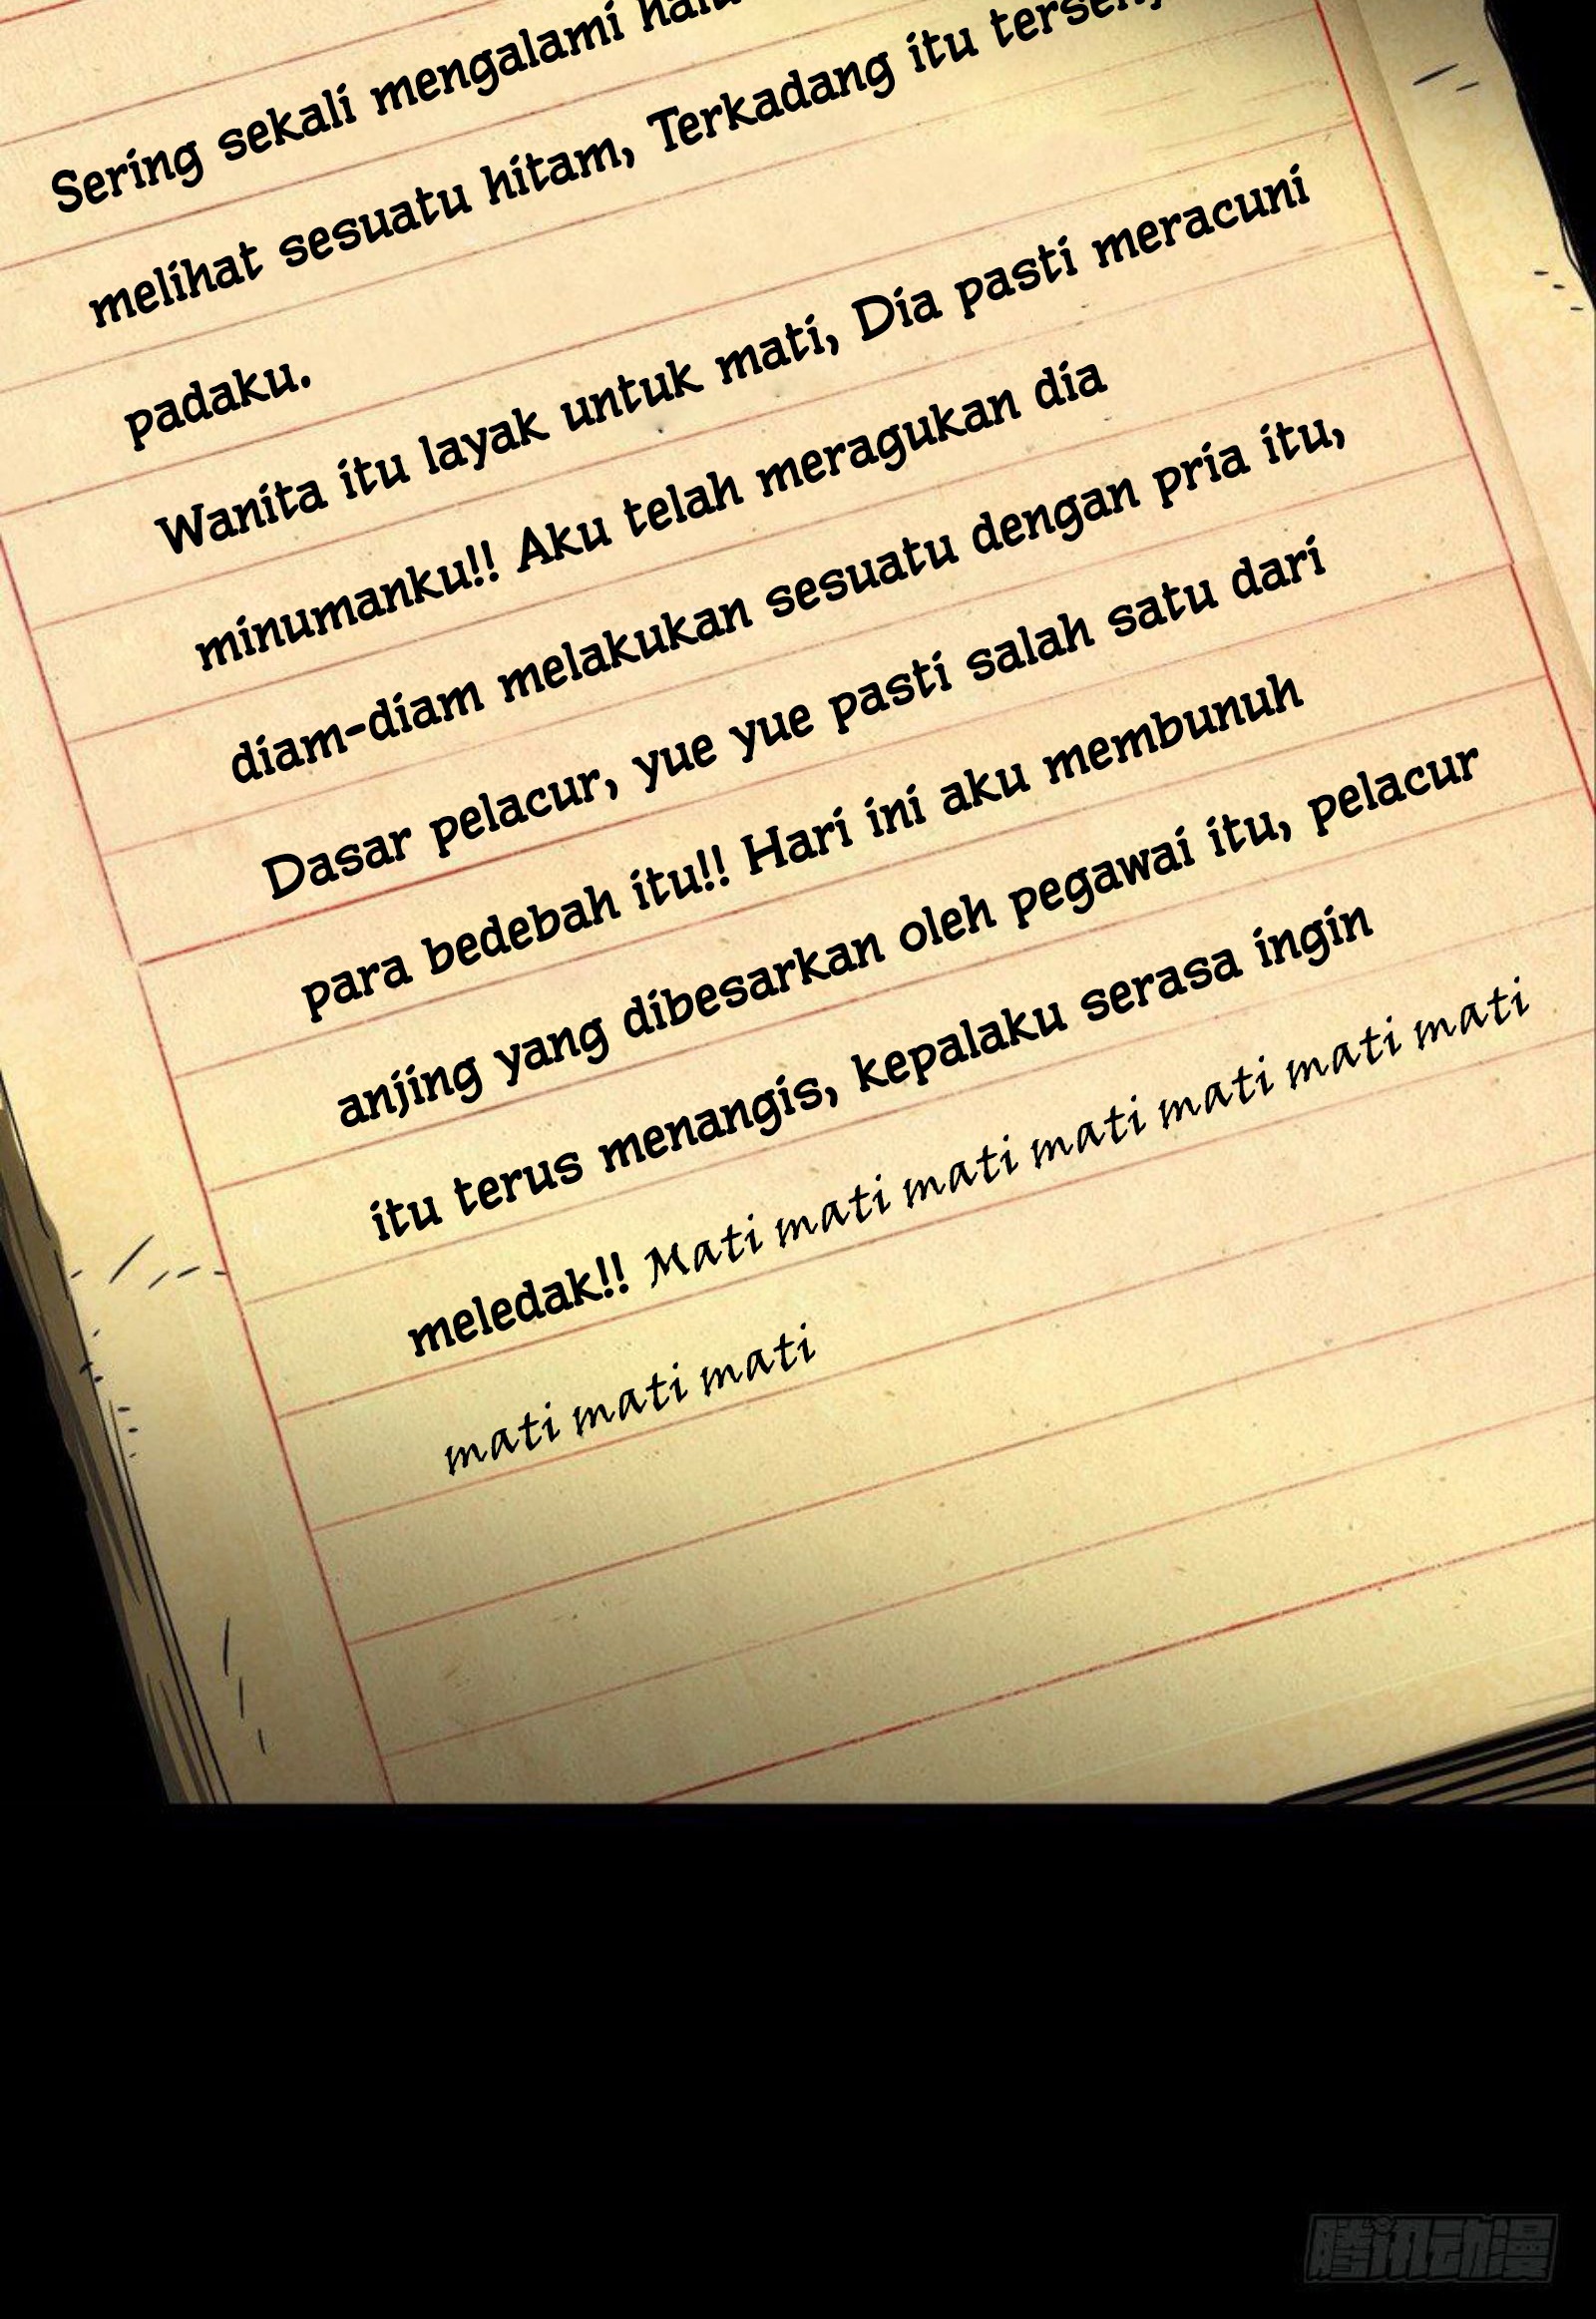 Sering sekali mengalami
melihat sesuatu hitam, Terkadang itu
padaku.
Wanita itu layak untuk mati, Dia pasti meracuni
minumanku!! Aku telah meragukan dia
diam-diam melakukan sesuatu dengan pria itu,
Dasar pelacur, yue yue pasti salah satu dari
para bedebah itu!! Hari ini aku membunuh
anjing yang dibesarkan oleh pegawai itu, pelacur
itu terus menangis, kepalaku serasa ingin
meledak!! Mati mati mati mati mati mati mati
mati mati mati
腾讯动漫